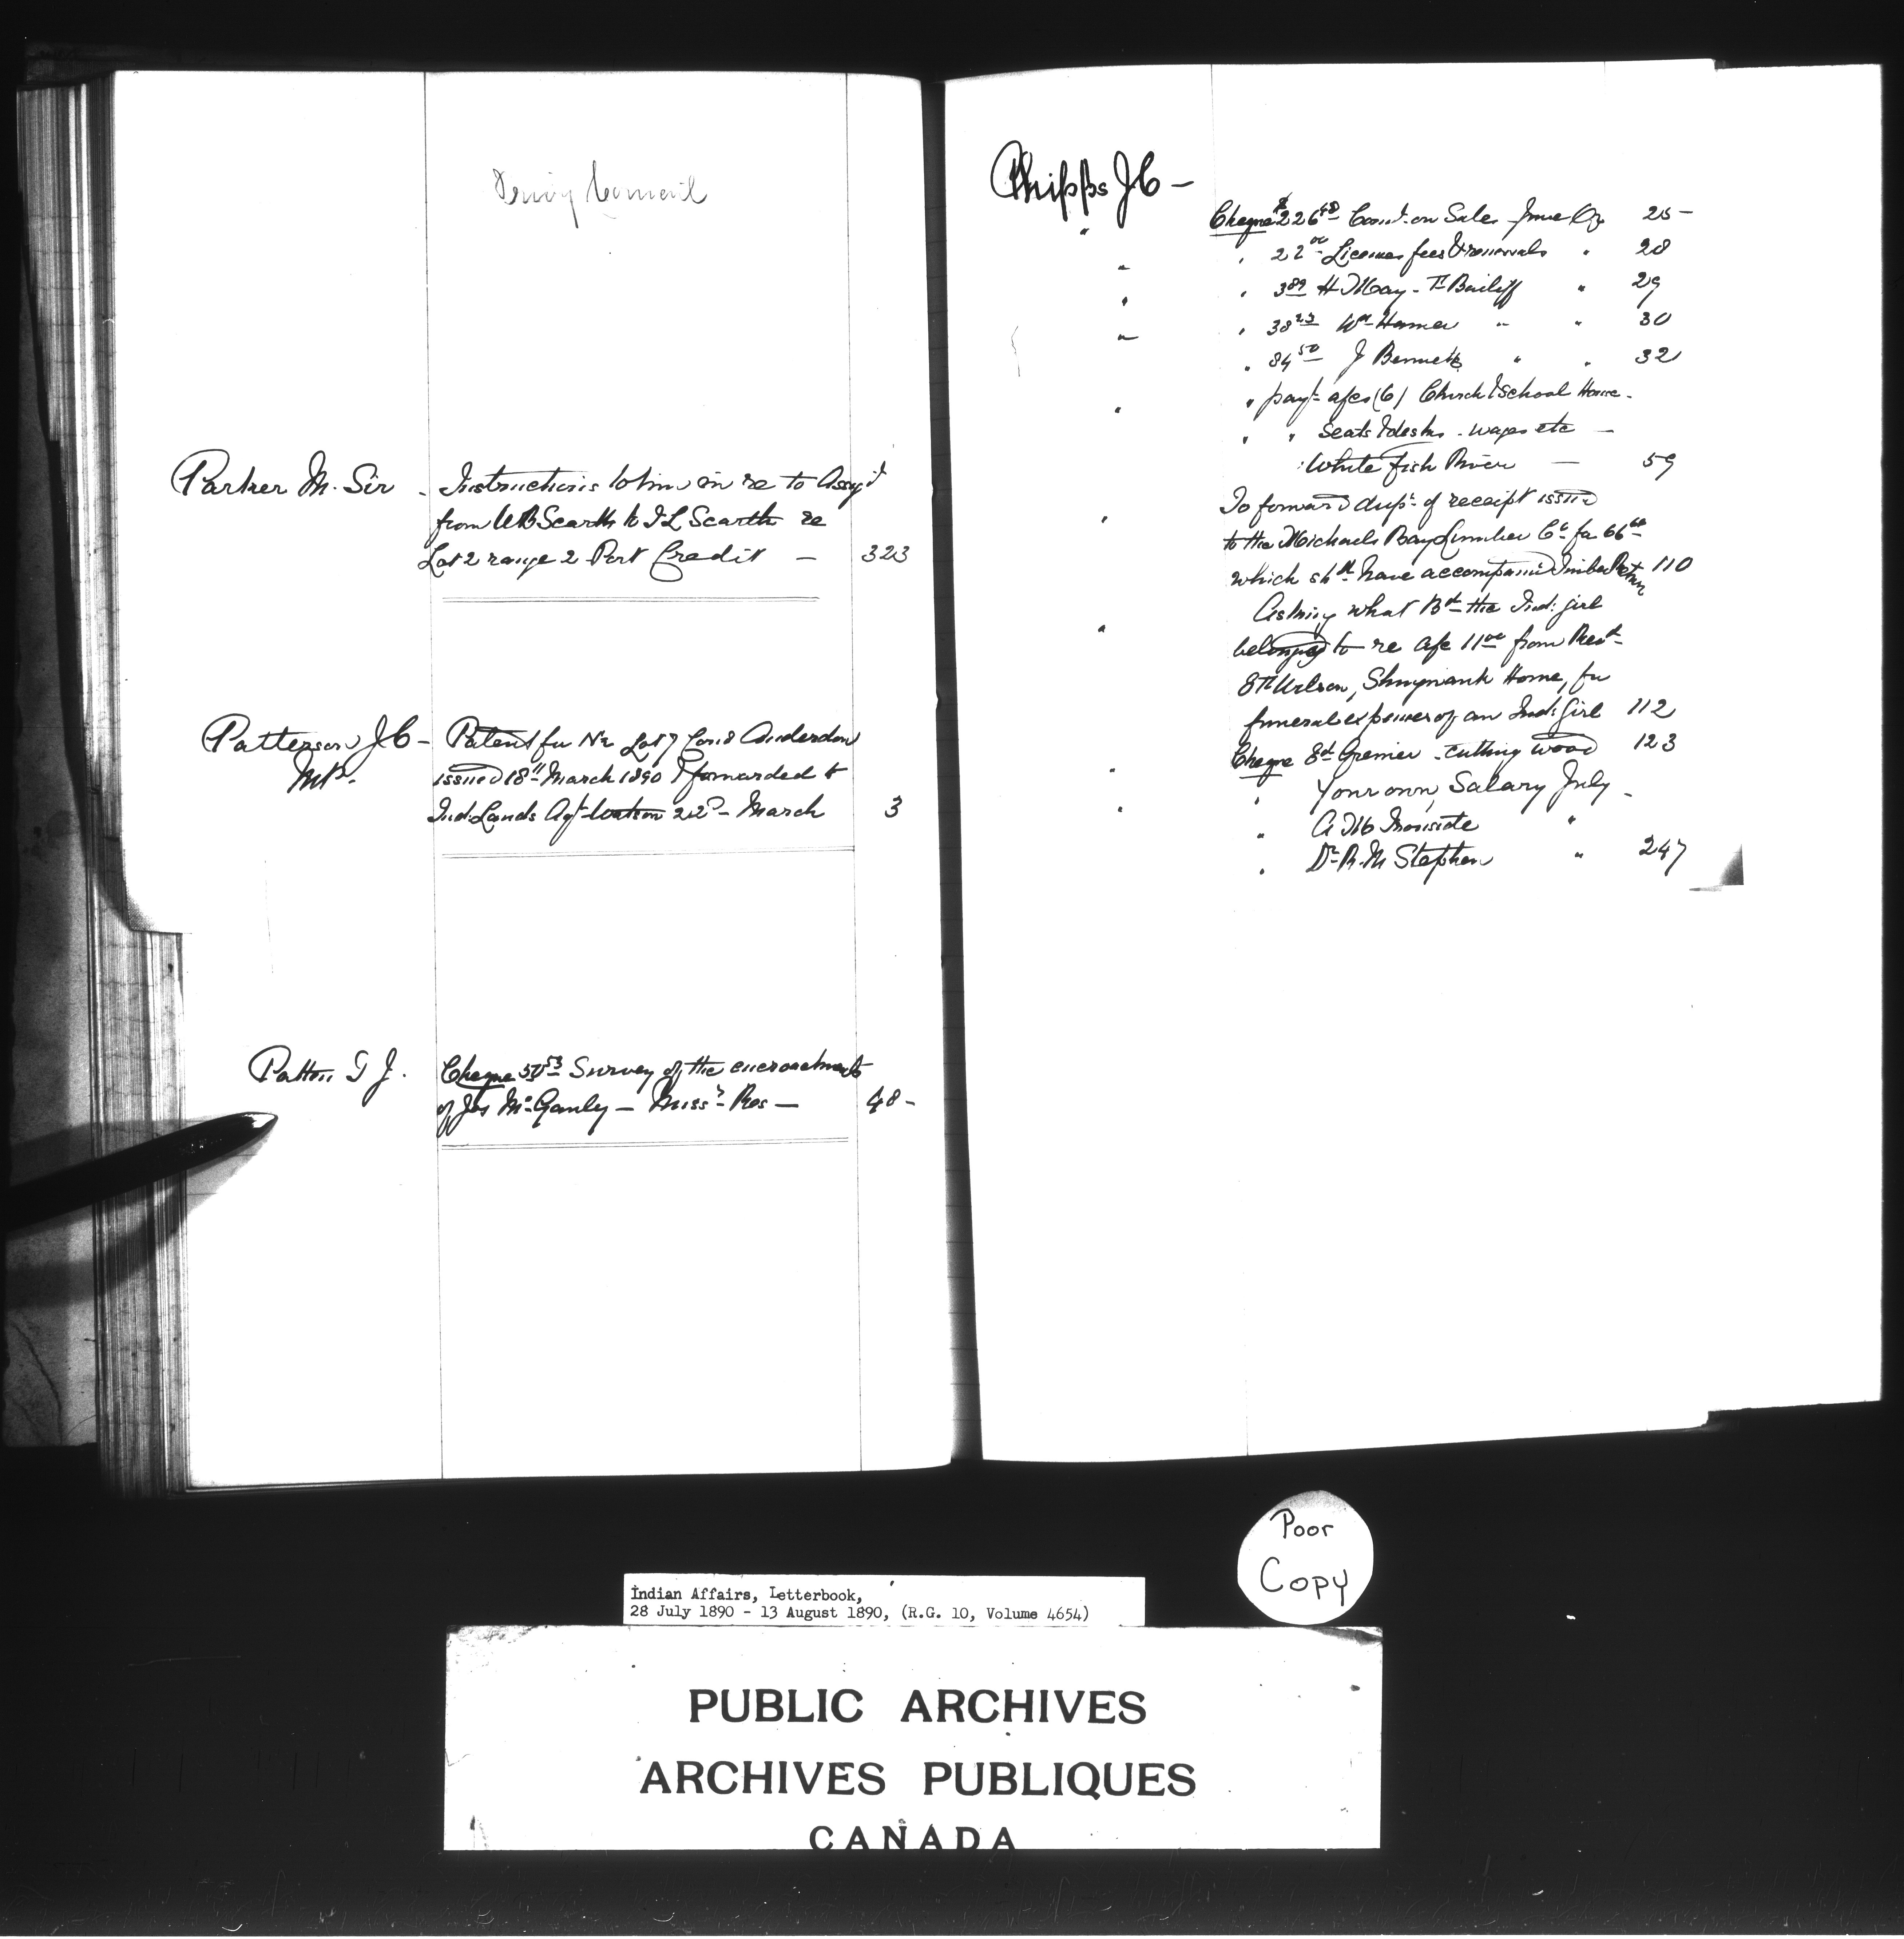 Privy Council
Parker M. Sir - Instructions to him in re to Assg't
from WB Scarth to J L Scarth re
Lot 2 range 2 Port Credit — 323
Patterson J C - Patent for Lot 7 Con 8 Anderdon
MP. issued 18th March 1890 & forwarded to
Ind: Lands Agt Watson 22d March 3
Patton J. Cheque Survey of the encroachments
of Jas McGanly — Miss: Res — 48 -
Phipps J C -
Cheque $226 48 Comt. on Sales June Qr 25 -
" " 22 00 Licenses fees & renewals " 28
" " 3 89 H May - Bailiff " 29
" " 38 23 Wm Hamer " " 30
" " 84 50 J Bennett " " 32
" payt a/cs (6) Church & School House -
" " Seats & desks - wages etc —
White fish River — 59
" To forward dupt. of receipt issued
to the Michaels Bay Lumber Co. for 66
which shd have accompanied Timber Return 110
" Asking what Bd the Ind: girl
belonged to re a/c 11 00 from Revd
Wilson, Shingwauk Home, for
funeral expenses of an Ind: Girl 112
" Cheque Ed Grenier - cutting wood 123
" " Your own, Salary July -
" A M Ironside "
" Dr R. M Stephen " 247
Poor
Copy
Indian Affairs, Letterbook,
28 July 1890 - 13 August 1890, (R.G. 10, Volume 4654)
PUBLIC ARCHIVES
ARCHIVES PUBLIQUES
CANADA